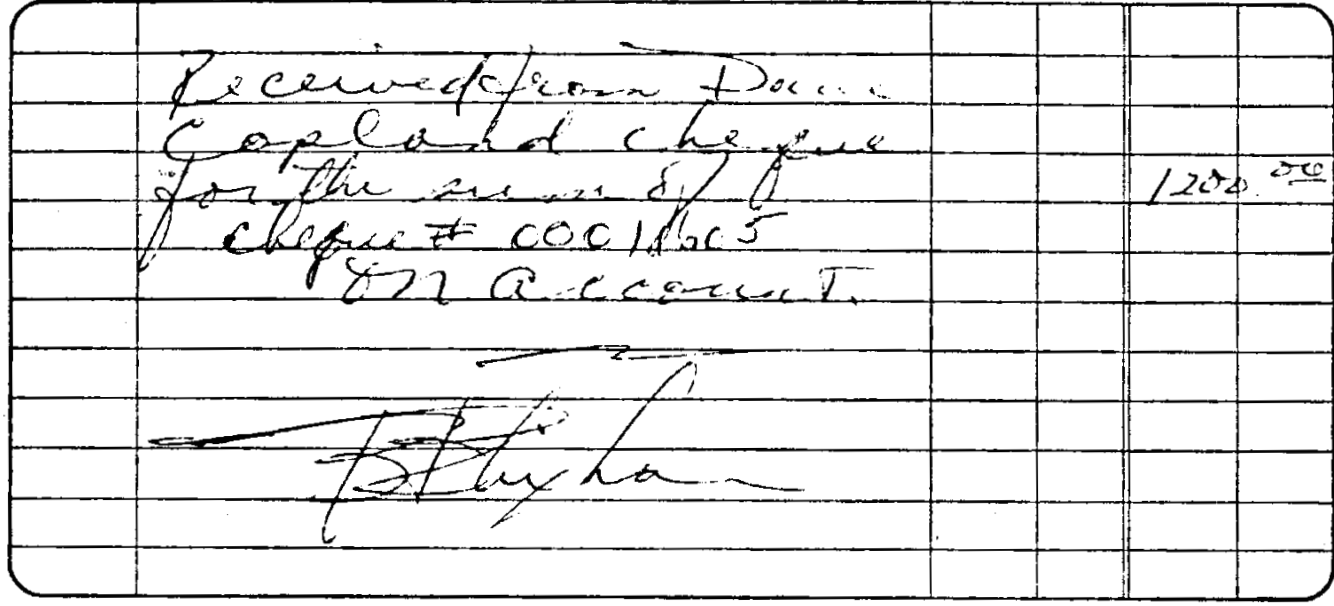 Received from
Copland cheque
for the sum of 1200.00
cheque #
on account.